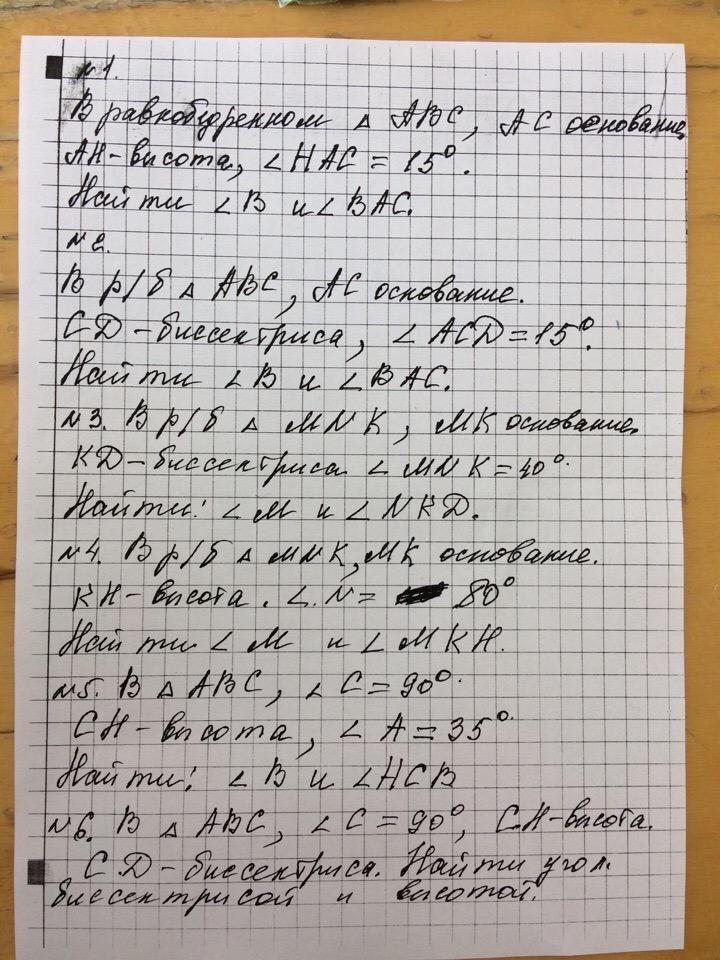 №1.
В равнобедренном △ ABC, AC основание,
AH-высота, ∠HAC = 15°.
Найти ∠B и ∠BAC.
№2.
В р/б △ ABC, AC основание.
CD-биссектриса, ∠ACD = 15°.
Найти ∠B и ∠BAC.
№3. В р/б △ MNK, MK основание.
KD-биссектриса. ∠MNK = 40°.
Найти: ∠M и ∠NKD.
№4. В р/б △ MNK, MK основание.
KH-высота. ∠N = 80°
Найти ∠M и ∠MKH.
№5. В △ ABC, ∠C = 90°.
CH-высота, ∠A = 35°.
Найти: ∠B и ∠HCB
№6. В △ ABC, ∠C = 90°, CH-высота.
CD-биссектриса. Найти угол.
биссектрисой и высотой.